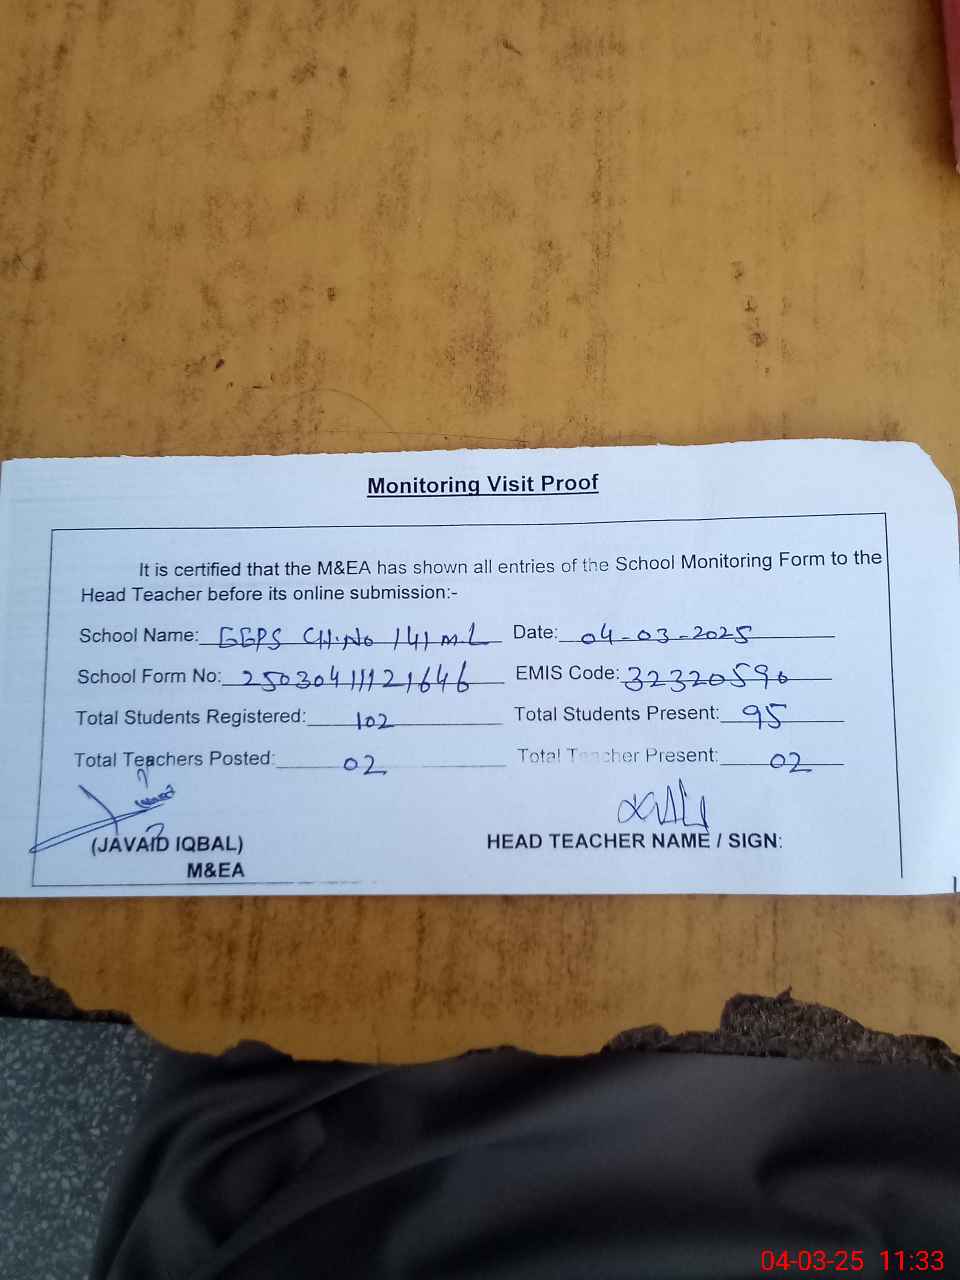 Monitoring Visit Proof
It is certified that the M&EA has shown all entries of the School Monitoring Form to the
Head Teacher before its online submission:-
School Name: GGPS CH.No 141 M.L Date: 04-03-2025
School Form No: 2503041112 1646 EMIS Code: 32320590
Total Students Registered: 102 Total Students Present: 95
Total Teachers Posted: 02 Total Teacher Present: 02
(JAVAID IQBAL) HEAD TEACHER NAME / SIGN:
M&EA
04-03-25 11:33